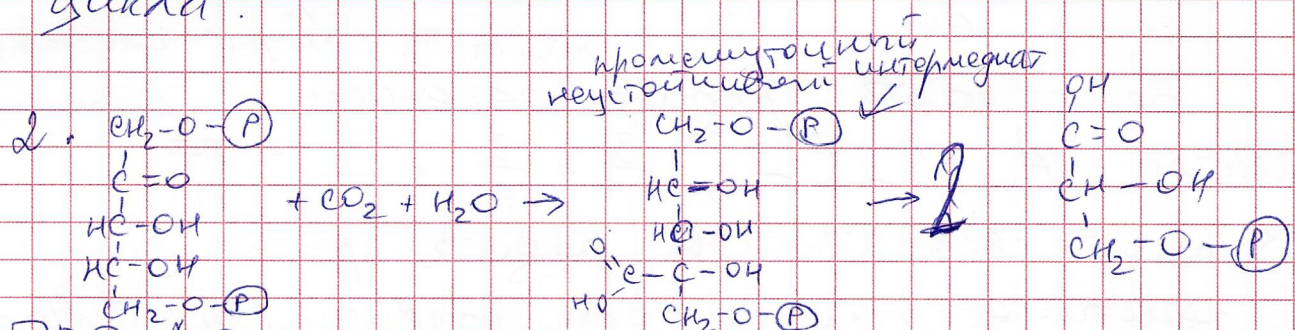 цикла.
промежуточный
неустойчивый интермедиат
2. CH2-O-P
C=O
HC-OH
HC-OH
CH2-O-P
+ CO2 + H2O →
CH2-O-P
HC=OH
HC-OH
O
C-C-OH
HO
CH2-O-P
→ 2
OH
C=O
CH-OH
CH2-O-P